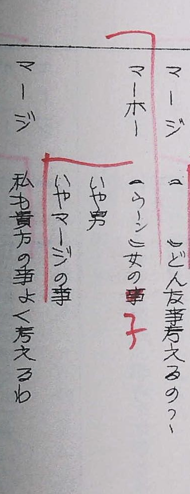 マージ ( )どんな事考えるの?
マーホー (ウーン)女の事子
いや男
いやマージの事
マージ 私も貴方の事よく考えるわ